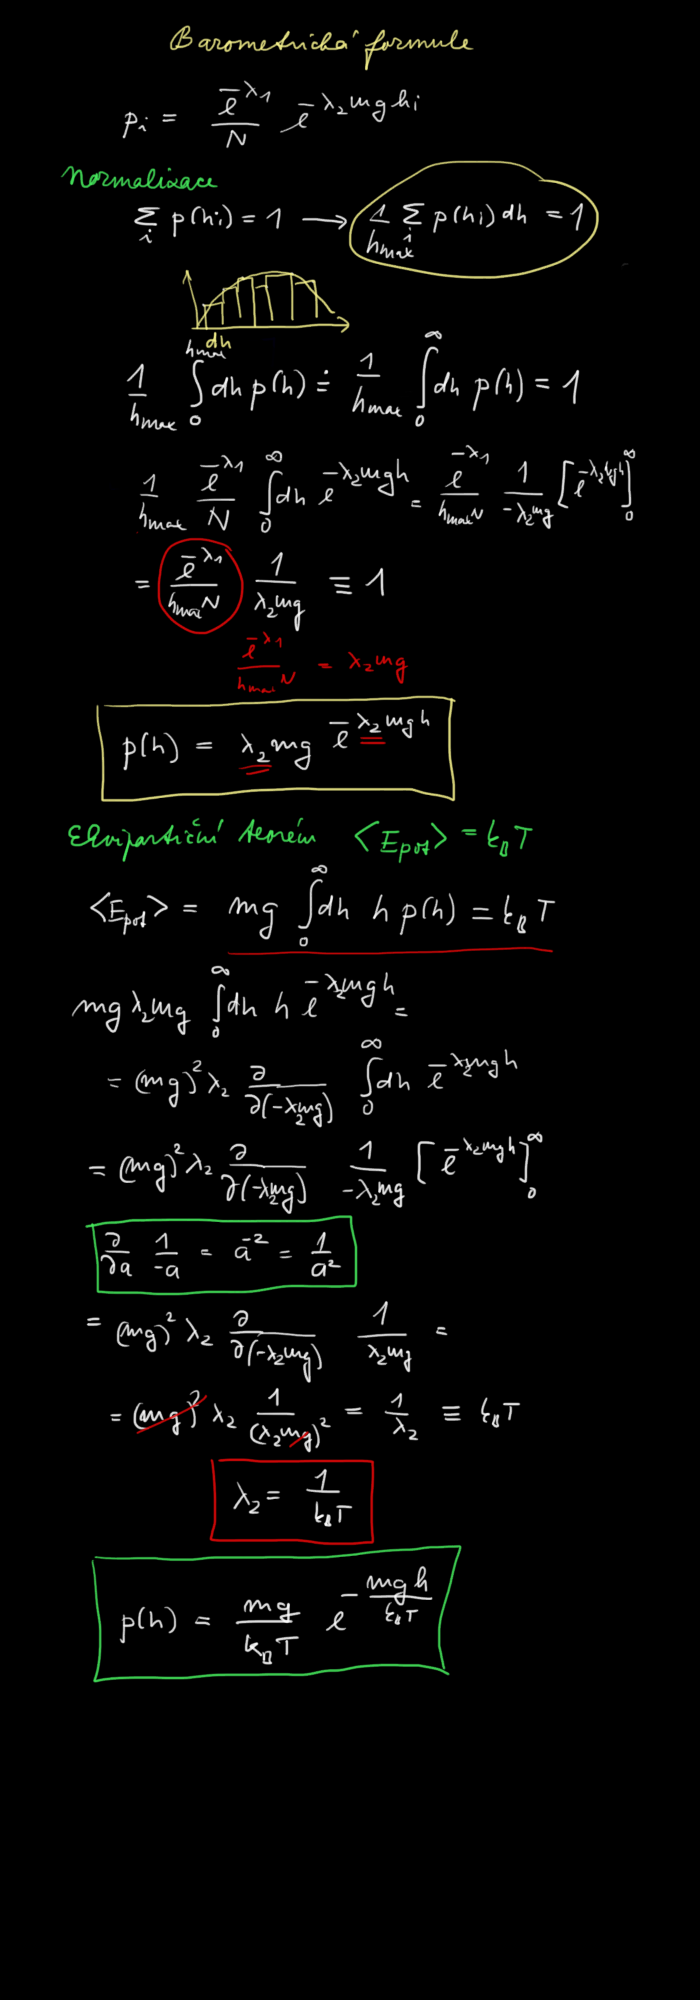 Barometrická formule
p_i = e^{-λ_1}/N e^{-λ_2 mg h_i}
Normalizace
∑_i p(h_i) = 1 → 1/h_max ∑_i p(h_i) dh = 1
dh
1/h_max ∫_0^{h_max} dh p(h) ≐ 1/h_max ∫_0^∞ dh p(h) = 1
1/h_max e^{-λ_1}/N ∫_0^∞ dh e^{-λ_2 mgh} = e^{-λ_1}/(h_max N) 1/(-λ_2 mg) [e^{-λ_2 mgh}]_0^∞
= e^{-λ_1}/(h_max N) 1/(λ_2 mg) ≡ 1
e^{-λ_1}/(h_max N) = λ_2 mg
p(h) = λ_2 mg e^{-λ_2 mgh}
Ekvipartiční teorém ⟨E_pot⟩ = k_B T
⟨E_pot⟩ = mg ∫_0^∞ dh h p(h) = k_B T
mg λ_2 mg ∫_0^∞ dh h e^{-λ_2 mgh} =
= (mg)^2 λ_2 ∂/∂(-λ_2 mg) ∫_0^∞ dh e^{-λ_2 mgh}
= (mg)^2 λ_2 ∂/∂(-λ_2 mg) 1/(-λ_2 mg) [e^{-λ_2 mgh}]_0^∞
∂/∂a 1/(-a) = a^{-2} = 1/a^2
= (mg)^2 λ_2 ∂/∂(-λ_2 mg) 1/(λ_2 mg) =
= (mg)^2 λ_2 1/(λ_2 mg)^2 = 1/λ_2 ≡ k_B T
λ_2 = 1/(k_B T)
p(h) = mg/(k_B T) e^{-mgh/(k_B T)}